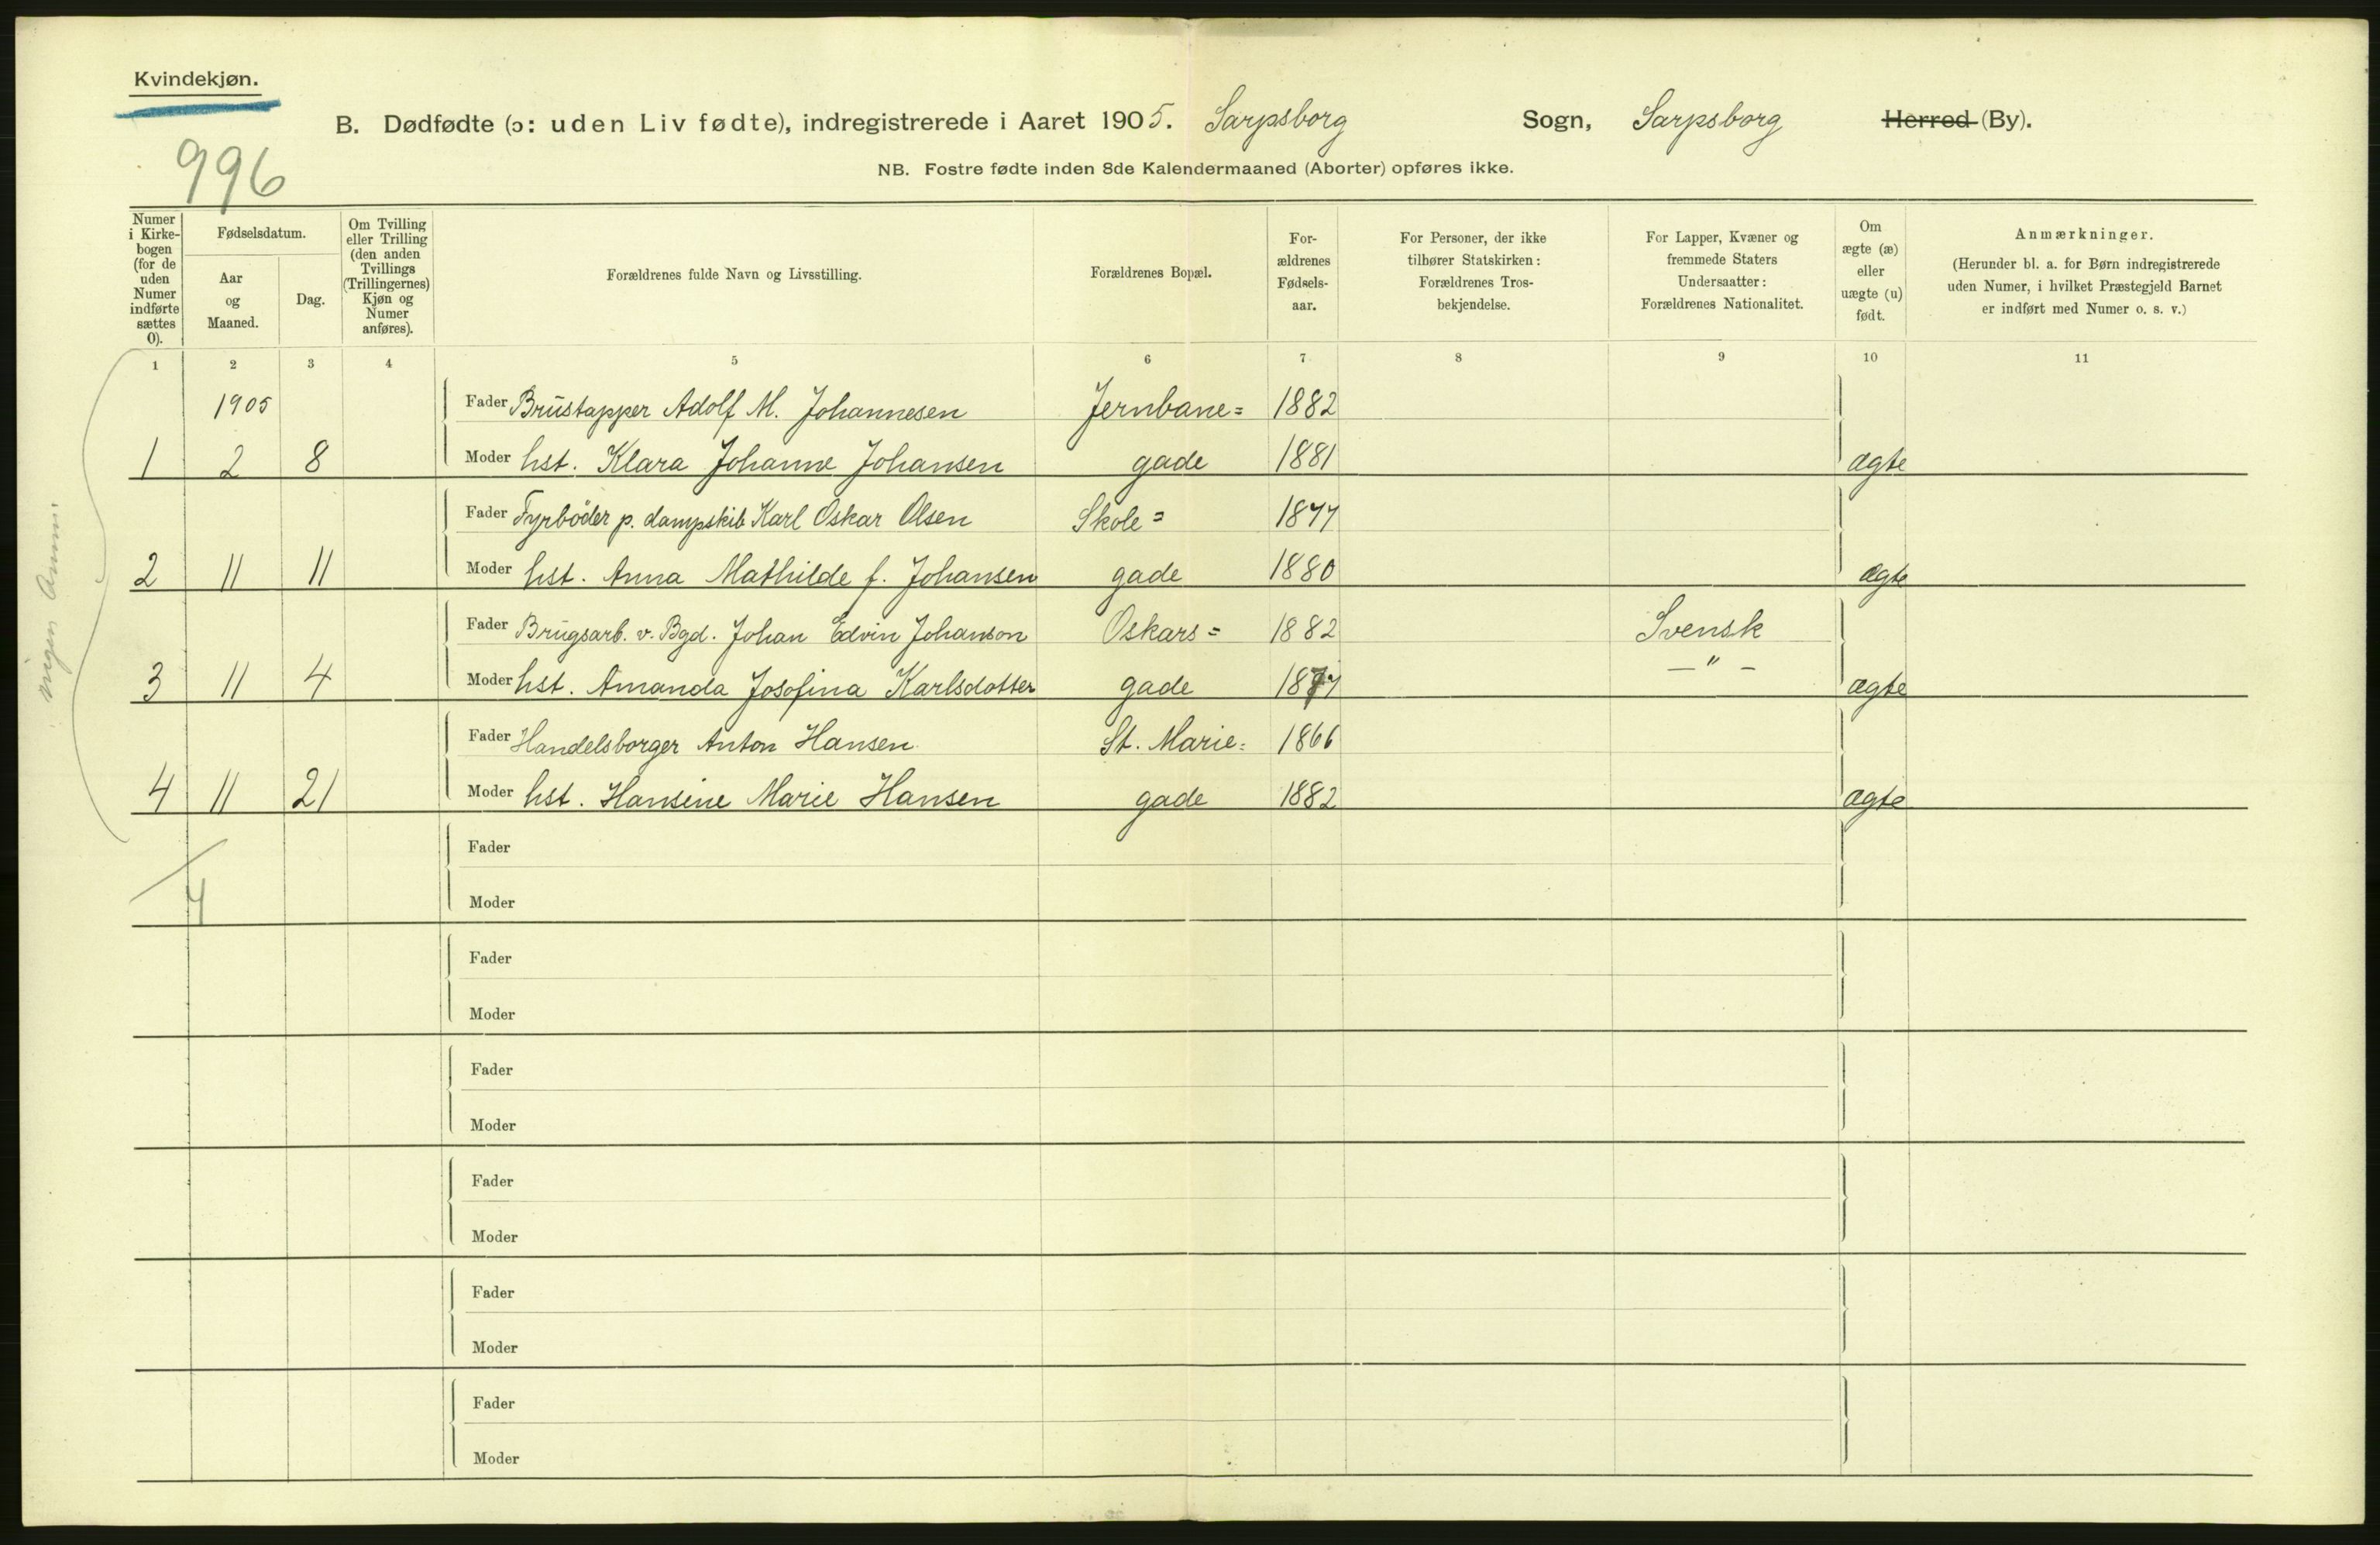 Kvindekjøn.
996
B. Dødfødte (ɔ: uden Liv fødte), indregistrerede i Aaret 1905. Sarpsborg Sogn, Sarpsborg Herred (By).
NB. Fostre fødte inden 8de Kalendermaaned (Aborter) opføres ikke.
Numer i Kirkebogen (for de uden Numer indførte sættes 0).
Fødselsdatum.
Aar og Maaned.
Dag.
Om Tvilling eller Trilling (den anden Tvillings (Trillingernes) Kjøn og Numer anføres).
Forældrenes fulde Navn og Livsstilling.
Forældrenes Bopæl.
For-ældrenes Fødsels-aar.
For Personer, der ikke tilhører Statskirken: Forældrenes Tros-bekjendelse.
For Lapper, Kvæner og fremmede Staters Undersaatter: Forældrenes Nationalitet.
Om ægte (æ) eller uægte (u) født.
Anmærkninger.
(Herunder bl. a. for Børn indregistrerede uden Numer, i hvilket Præstegjeld Barnet er indført med Numer o. s. v.)
1 2 3 4 5 6 7 8 9 10 11
1905 Fader Brustapper Adolf M. Johannesen Jernbane= 1882
1 2 8 Moder hst. Klara Johanne Johansen gade 1881 ægte
Fader Fyrbøder p. dampskib Karl Oskar Olsen Skole= 1877
2 11 11 Moder hst. Anna Mathilde f. Johansen gade 1880 ægte
Fader Brugsarb. v. Bgd. Johan Edvin Johanson Oskars= 1882 Svensk
3 11 4 Moder hst. Amanda Josofina Karlsdotter gade 1877 — " — ægte
Fader Handelsborger Anton Hansen St. Marie= 1866
4 11 21 Moder hst. Hansine Marie Hansen gade 1882 ægte
Fader
4
Moder
Fader
Moder
Fader
Moder
Fader
Moder
Fader
Moder
Fader
Moder
ingen Anm.